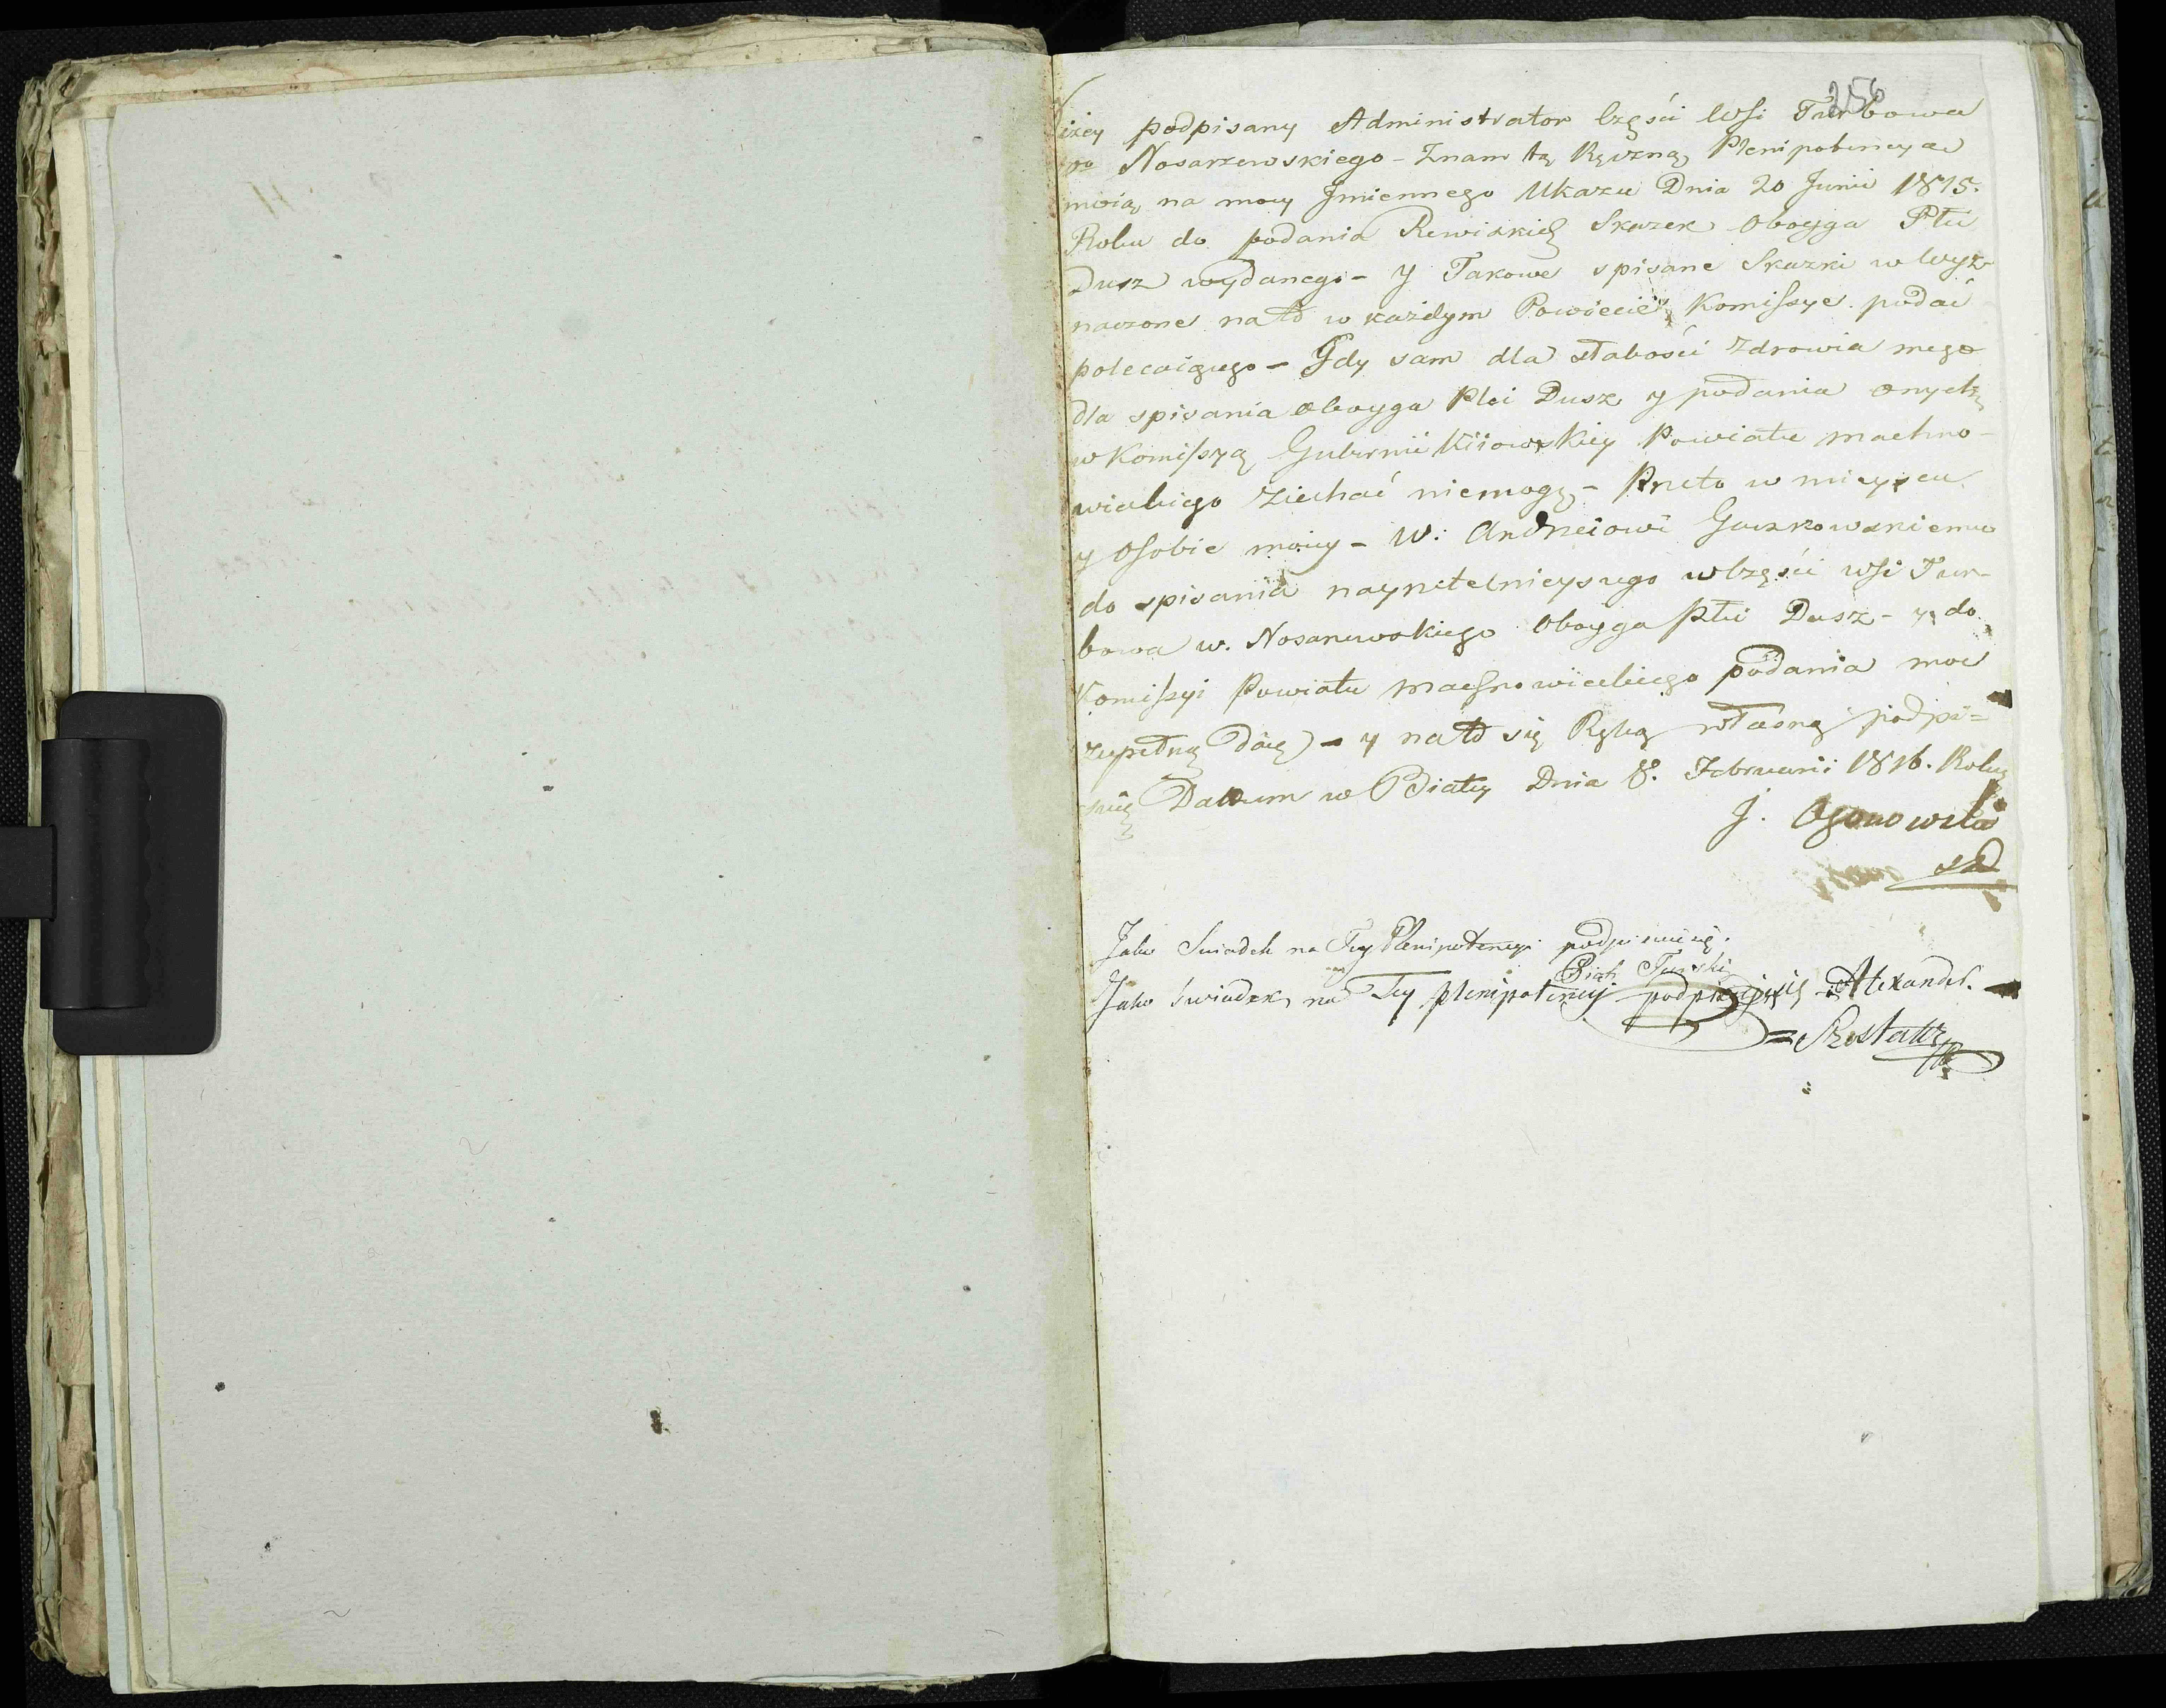 256
Niżey podpisany Administrator Częsci Wsi Turbowa
Wo Nosarzewskiego - Znam tą Ręczną Plenipotencya
moią na mocy Jmiennego Ukazu Dnia 20 Junii 1815.
Roku do podania Rewiskich Skazek Oboyga Płci
Dusz wydanego - Y Takowe spisane Skazki w Wyz-
naczone na to w każdym Powiecie Komissye podać
polecaiącego - Gdy sam dla słabości Zdrowia mego
dla spisania oboyga Płci Dusz y podania onych
w Komissyą Gubernii Kiiowskiey Powiatu Machno-
wieckiego Ziechać niemogę - Przeto w mieyscu
y Osobie moiey - W: Andrzeiowi Guzkowskiemu
do spisania nayrzetelnieyszego w Częsci wsi Tur-
bowa w. Nosarzewskiego Oboyga Płci Dusz - y do
Komissyi Powiatu Machnowieckiego podania moc
zupełną daię - y na to się Ręką własną podpi=
suię Datum w Białey Dnia 8. Februarii 1816. Roku
J. Ogonowski
Jako Swiadek na Tey Plenipotencyi podpisuie się.
Piotr Turski
Jako swiadek na Tey plenipotencyi podpisuię się - Alexander